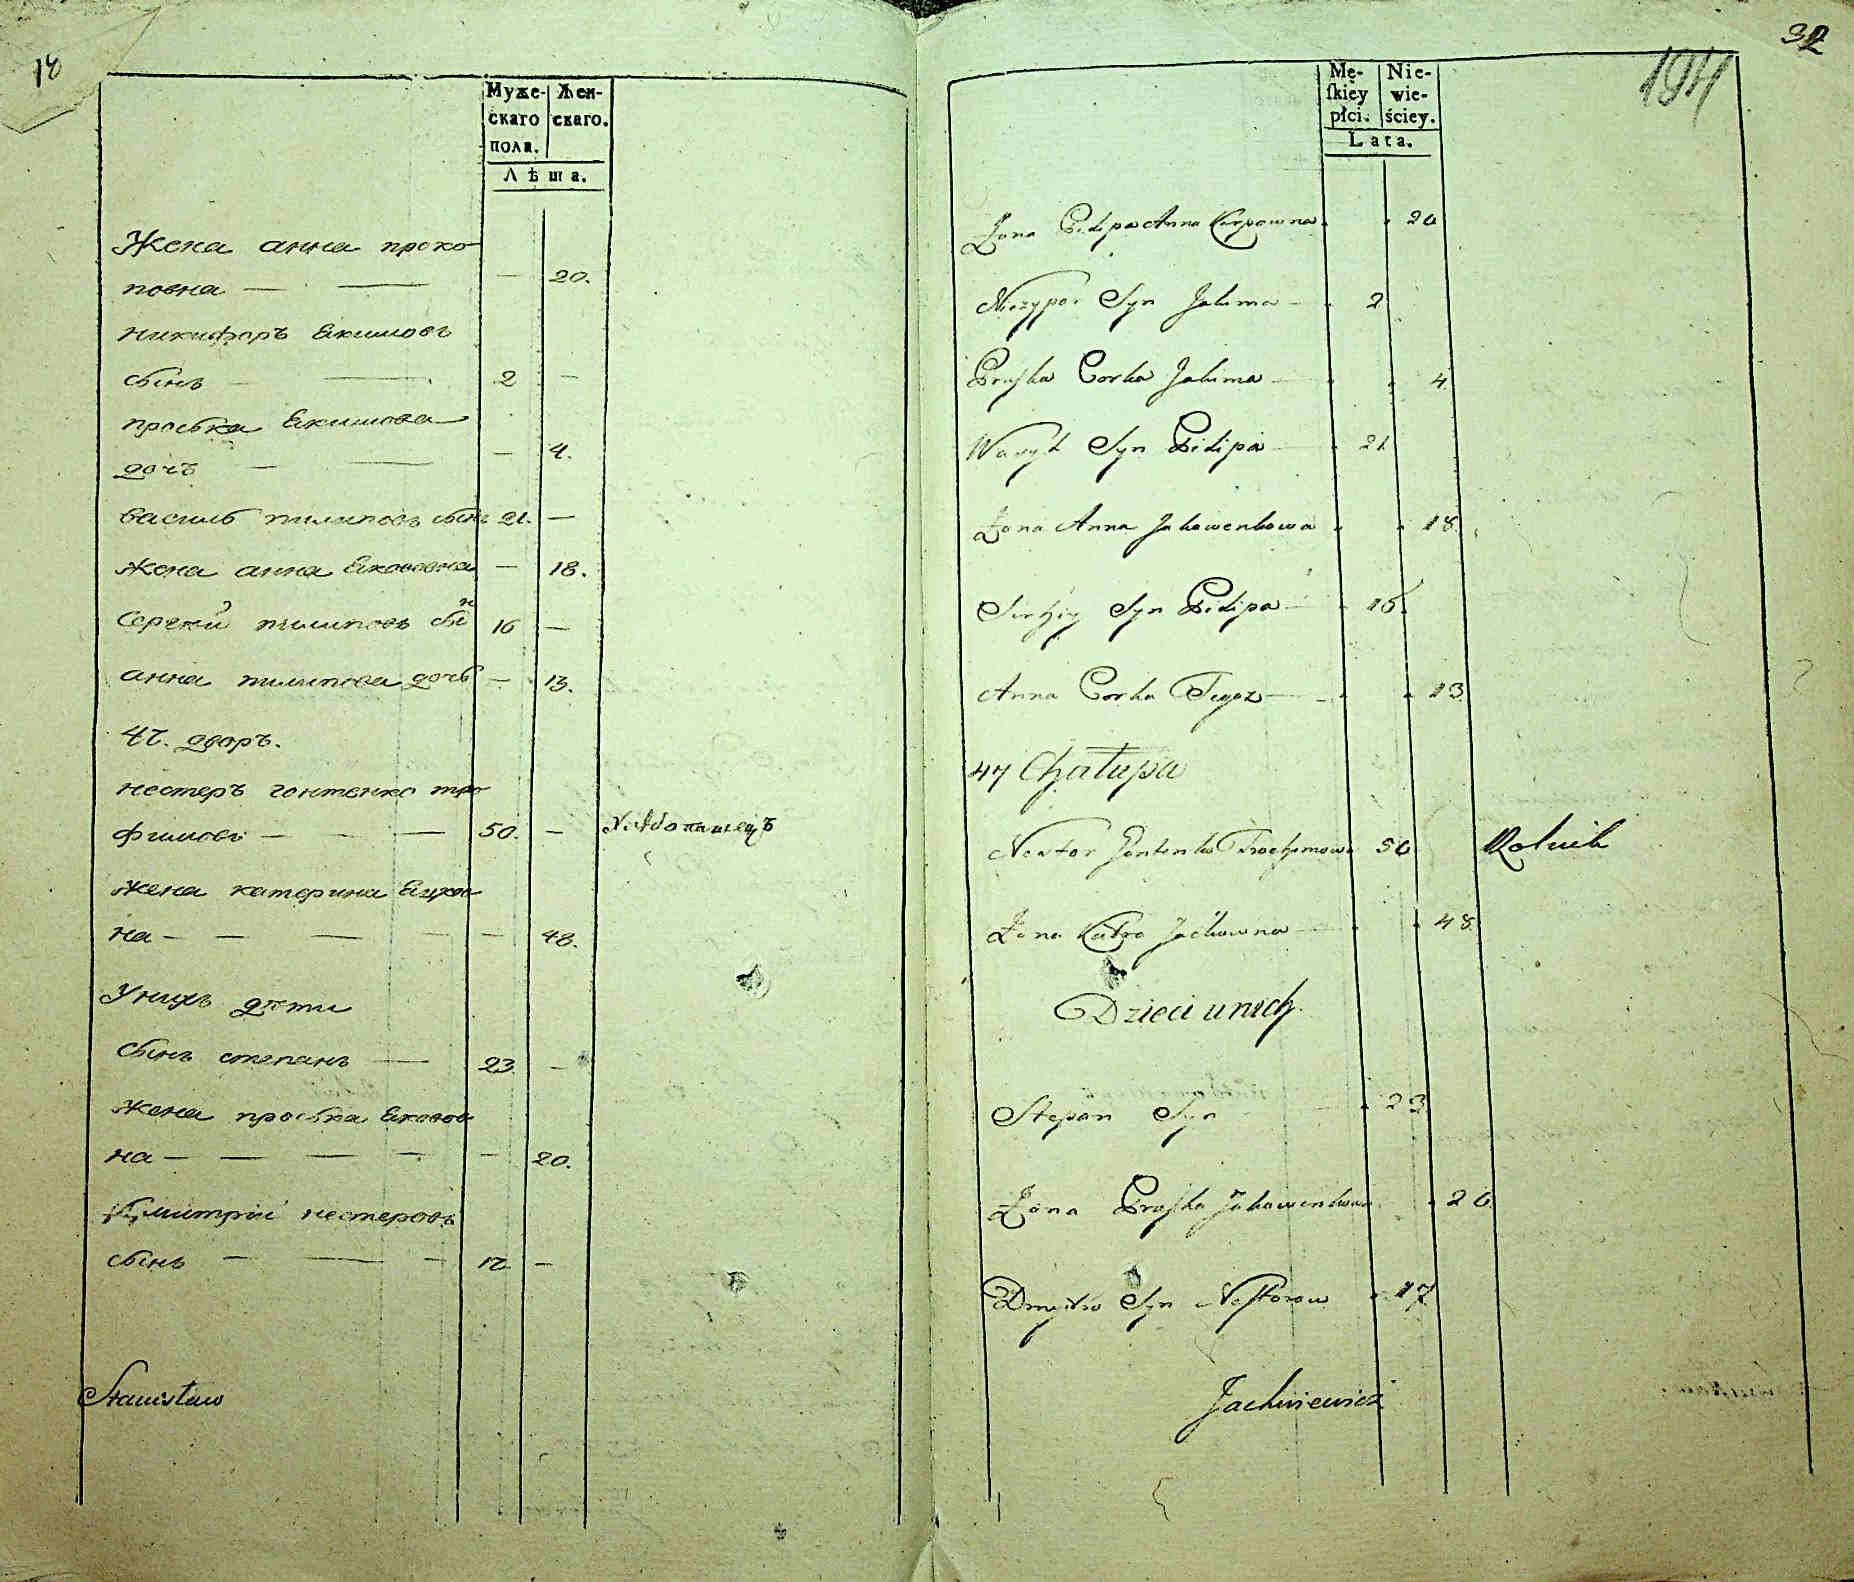 18
Муже- Жен-
скаго скаго.
пола.
Лѣта.
Жена анна проко
повна — — — 20.
никифоръ Екимовъ
сынъ — — 2 —
проська Екимова
дочь — — — 4.
василь пилиповъ сынъ 21. —
жена анна Якововна — 18.
Сергей пилиповъ сын 16 —
анна пилипова дочь — 13.
47. дворъ.
нестеръ гонтенко тро
фимовъ — — — 50. — Хлѣбопашецъ
жена катерина Яцков
на — — — — — 48.
У нихъ дѣти
сынъ степанъ — 23. —
жена проська Яковов
на — — — — — 20.
Дмитрій нестеровъ
сынъ — — — 17. —
Stanisław
32
194
Mę- Nie-
ſkiey wie-
płci. ściey.
Lata.
Żona Pilipa Anna Karpowna 20
Niczypor Syn Jakima — 2
Praſka Corka Jakima — 4
Wasyl Syn Pilipa — 21
Żona Anna Jakowenkowa 18.
Serhiy Syn Pilipa — 16.
Anna Corka Tegoż — 13
47 Chałupa
Nestor Gontenko Trochimowi 50 Rolnik
Żona Katra Jackowna — 48.
Dzieci u nich
Stepan Syn 23
Żona Praſka Jakowenkowna 20.
Dmytro Syn Neſtorow 17
Jachniewicz